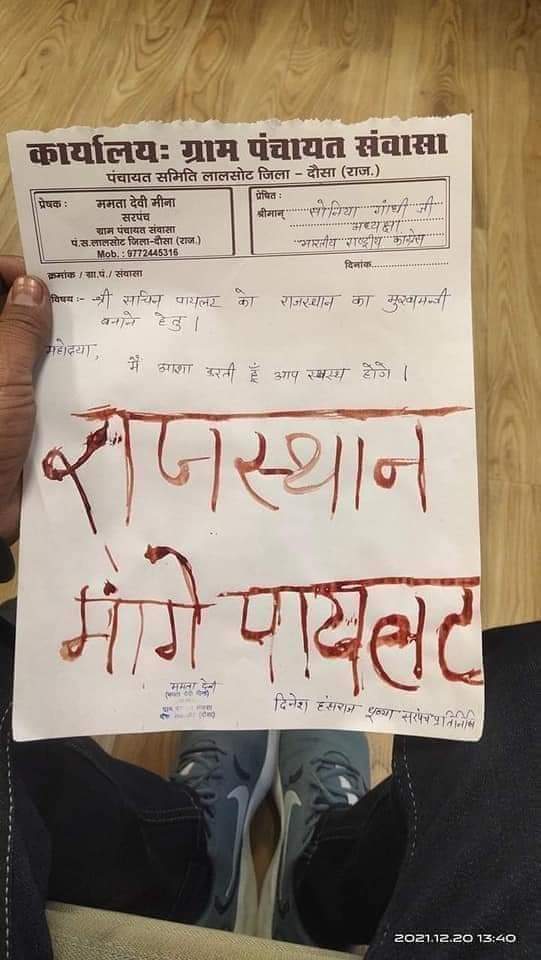 कार्यालयः ग्राम पंचायत संवासा
पंचायत समिति लालसोट जिला - दौसा (राज.)
प्रेषक : ममता देवी मीना
सरपंच
ग्राम पंचायत संवासा
पं.स.लालसोट जिला-दौसा (राज.)
Mob. : 9772445316
प्रेषित :
श्रीमान् सोनिया गांधी जी
अध्यक्षा
भारतीय राष्ट्रीय कांग्रेस
क्रमांक / ग्रा.पं./ संवासा
दिनांक......................
विषय :- श्री सचिन पायलट को राजस्थान का मुख्यमन्त्री
बनाने हेतु।
महोदया,
मैं आशा करती हूँ आप स्वस्थ होंगे।
राजस्थान
मांगे पायलट
ममता देवी
दिनेश हंसराज सरपंच प्रतिनिधि
2021.12.20 13:40